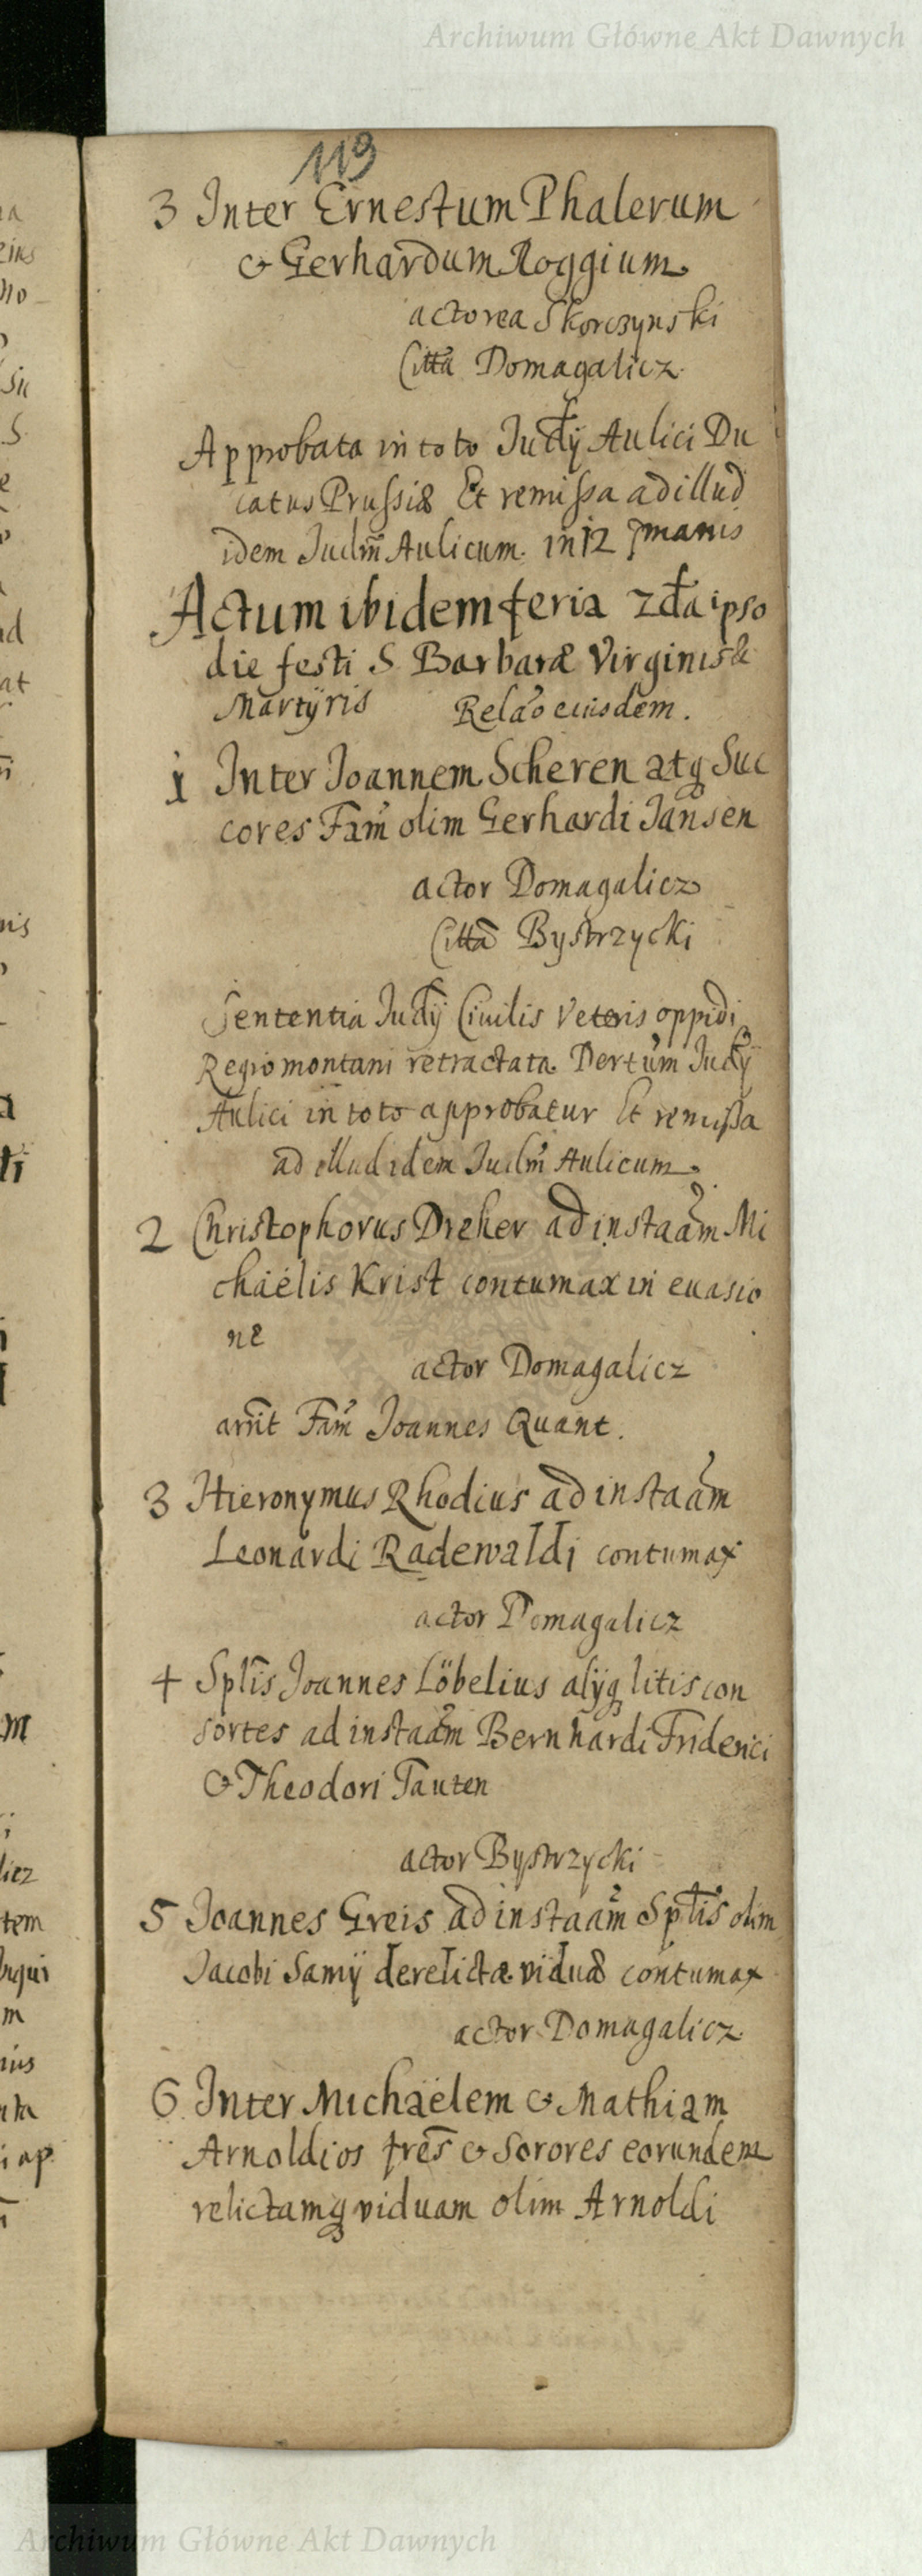 Archiwum Główne Akt Dawnych
119
3 Inter Ernestum Phalerum
& Gerhardum Roggium
actorea Skorczynski
Citta Domagalicz
Approbata in toto Judÿ Aulici Du
catus Prussiæ Et remissa ad illud
idem Judm Aulicum in 12 manis
Actum ibidem feria 2da ipso
die festi S Barbaræ Virginis &
Martÿris Relao eiusdem.
1 Inter Joannem Scheren atq Suc
cores Fam olim Gerhardi Jansen
actor Domagalicz
Citta Bystrzycki
Sententia Judÿ Civilis Veteris oppidi
Regiomontani retractata Dertum Judÿ
Aulici in toto approbatur Et remissa
ad illud idem Judm Aulicum
2 Christophorus Dreher ad instaam Mi
chaëlis Krist contumax in euasio
ne
actor Domagalicz
arrit Fam Joannes Quant.
3 Hieronymus Rhodius ad instaam
Leonardi Radewaldi contumax
actor Domagalicz
4 Splis Joannes Löbelius alÿq litis con
sortes ad instaam Bernhardi Friderici
& Theodori Tauten
actor Bystrzycki
5 Joannes Greis ad instaam Sptis olim
Jacobi Samÿ derelictæ viduæ contumax
actor Domagalicz
6 Inter Michaëlem & Mathiam
Arnoldios fres & Sorores eorundem
relictamq viduam olim Arnoldi
Archiwum Główne Akt Dawnych